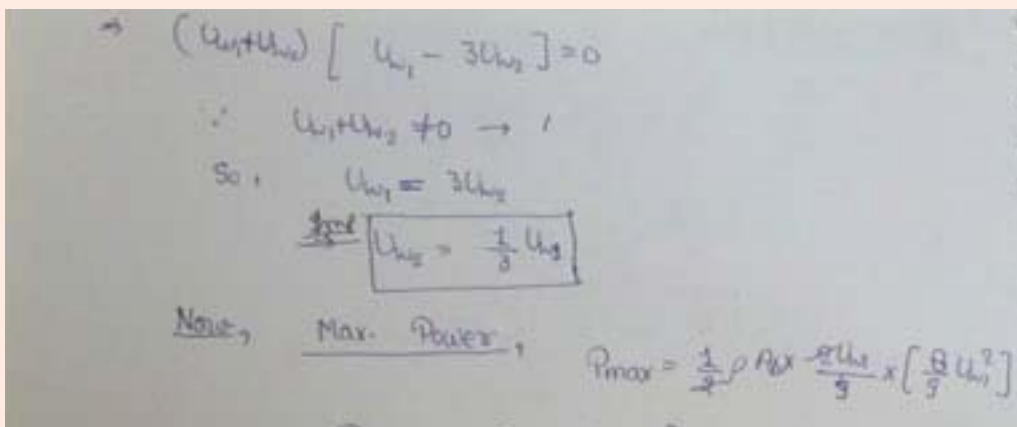 ⇒ (Uw₁+Uw₂) [ Uw₁ - 3Uw₂ ] = 0
∵ Uw₁+Uw₂ ≠ 0 →
So, Uw₁ = 3Uw₂
Uw₂ = 1/3 Uw₁
Now, Max. Power,
Pmax = 1/2 ρ Ab x 2Uw₁/3 x [8/9 Uw₁²]